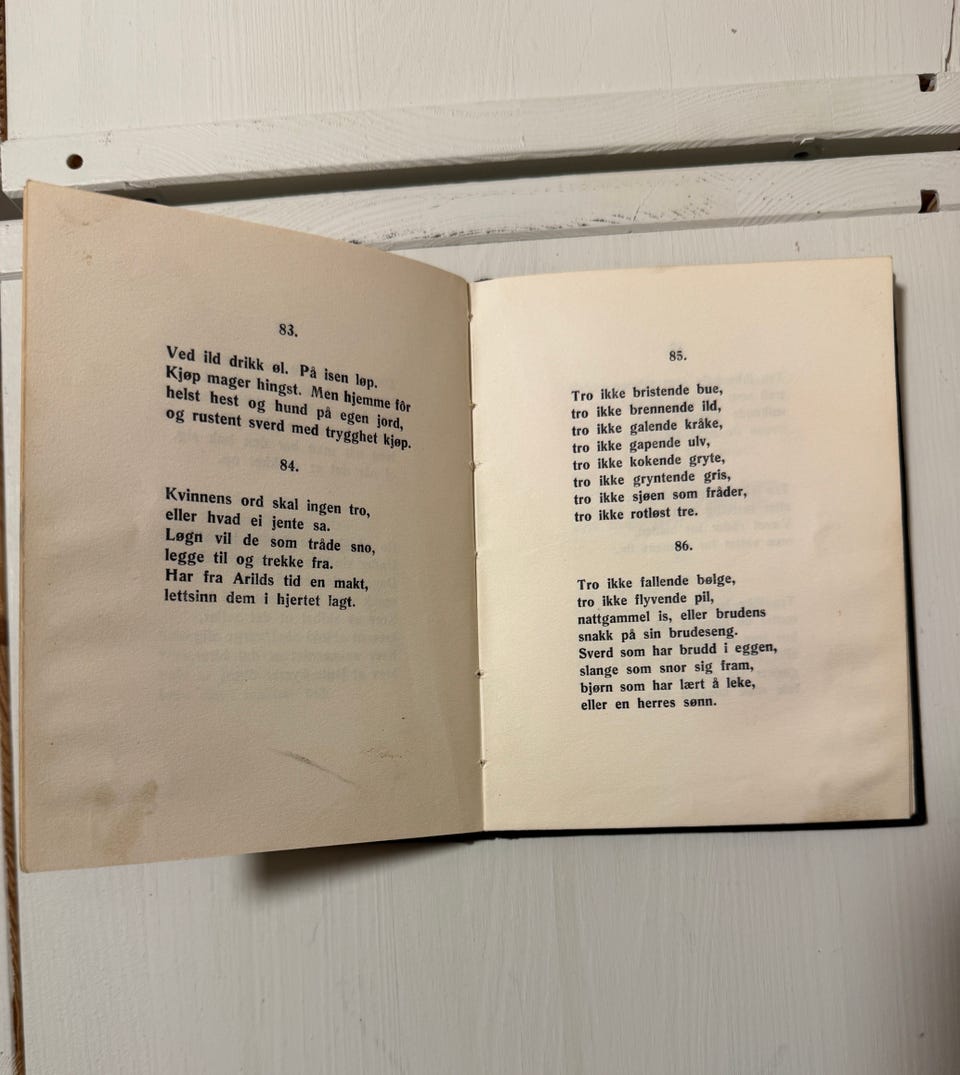 83.
Ved ild drikk øl. På isen løp.
Kjøp mager hingst. Men hjemme fôr
helst hest og hund på egen jord,
og rustent sverd med trygghet kjøp.
84.
Kvinnens ord skal ingen tro,
eller hvad ei jente sa.
Løgn vil de som tråde sno,
legge til og trekke fra.
Har fra Arilds tid en makt,
lettsinn dem i hjertet lagt.
85.
Tro ikke bristende bue,
tro ikke brennende ild,
tro ikke galende kråke,
tro ikke gapende ulv,
tro ikke kokende gryte,
tro ikke gryntende gris,
tro ikke sjøen som fråder,
tro ikke rotløst tre.
86.
Tro ikke fallende bølge,
tro ikke flyvende pil,
nattgammel is, eller brudens
snakk på sin brudeseng.
Sverd som har brudd i eggen,
slange som snor sig fram,
bjørn som har lært å leke,
eller en herres sønn.